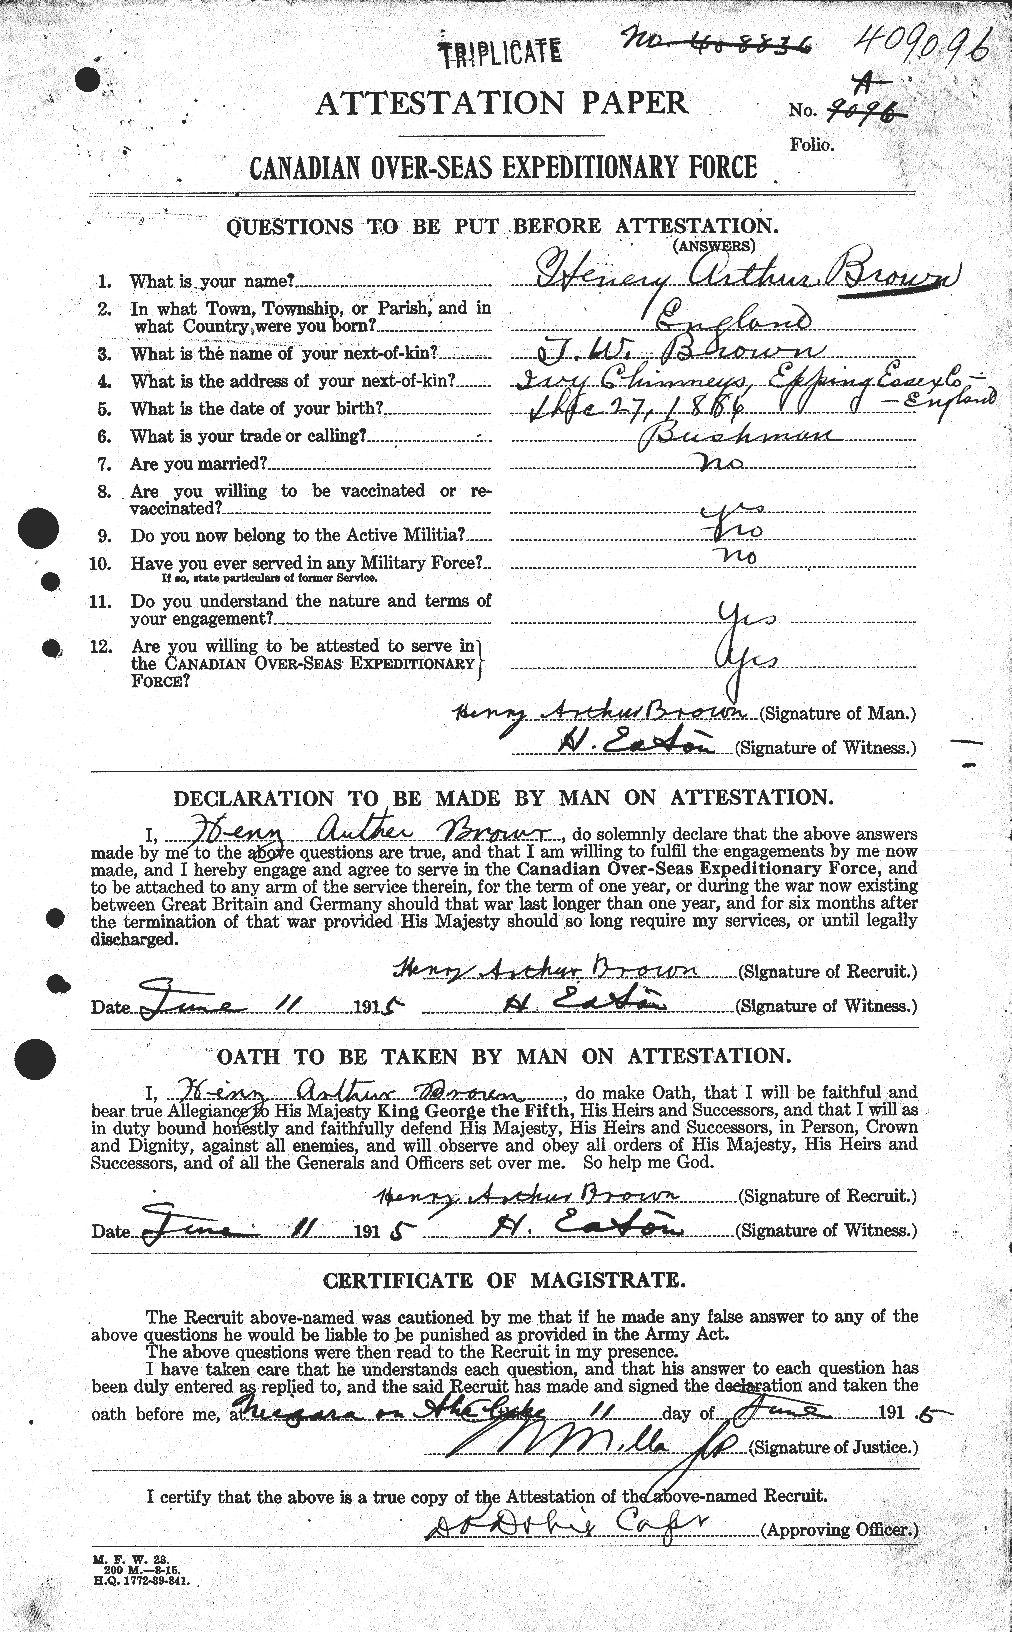 TRIPLICATE
No. 408836 409096
ATTESTATION PAPER
A
No. 9096
Folio.
CANADIAN OVER-SEAS EXPEDITIONARY FORCE
QUESTIONS TO BE PUT BEFORE ATTESTATION.
(ANSWERS)
1. What is your name? Henery Arthur Brown
2. In what Town, Township, or Parish, and in
what Country were you born? England
3. What is the name of your next-of-kin? T. W. Brown
4. What is the address of your next-of-kin? Ivy Chimneys, Epping Essex Co –
– England
5. What is the date of your birth? 27, 1886
6. What is your trade or calling? Bushman
7. Are you married? no
8. Are you willing to be vaccinated or re-
vaccinated? yes
9. Do you now belong to the Active Militia? no
10. Have you ever served in any Military Force? no
If so, state particulars of former Service.
11. Do you understand the nature and terms of
your engagement? Yes
12. Are you willing to be attested to serve in
the CANADIAN OVER-SEAS EXPEDITIONARY Yes
FORCE?
Henry Arthur Brown (Signature of Man.)
H. Eaton (Signature of Witness.)
DECLARATION TO BE MADE BY MAN ON ATTESTATION.
I, Henry Auther Brown, do solemnly declare that the above answers
made by me to the above questions are true, and that I am willing to fulfil the engagements by me now
made, and I hereby engage and agree to serve in the Canadian Over-Seas Expeditionary Force, and
to be attached to any arm of the service therein, for the term of one year, or during the war now existing
between Great Britain and Germany should that war last longer than one year, and for six months after
the termination of that war provided His Majesty should so long require my services, or until legally
discharged.
Henry Arthur Brown (Signature of Recruit.)
Date June 11 1915 H. Eaton (Signature of Witness.)
OATH TO BE TAKEN BY MAN ON ATTESTATION.
I, Henry Arthur Brown, do make Oath, that I will be faithful and
bear true Allegiance to His Majesty King George the Fifth, His Heirs and Successors, and that I will as
in duty bound honestly and faithfully defend His Majesty, His Heirs and Successors, in Person, Crown
and Dignity, against all enemies, and will observe and obey all orders of His Majesty, His Heirs and
Successors, and of all the Generals and Officers set over me. So help me God.
Henry Arthur Brown (Signature of Recruit.)
Date June 11 1915 H. Eaton (Signature of Witness.)
CERTIFICATE OF MAGISTRATE.
The Recruit above-named was cautioned by me that if he made any false answer to any of the
above questions he would be liable to be punished as provided in the Army Act.
The above questions were then read to the Recruit in my presence.
I have taken care that he understands each question, and that his answer to each question has
been duly entered as replied to, and the said Recruit has made and signed the declaration and taken the
oath before me, at Niegara on the Lake 11 day of June 1915
JP (Signature of Justice.)
I certify that the above is a true copy of the Attestation of the above-named Recruit.
Dobie Capt (Approving Officer.)
M. F. W. 23.
200 M.—8-15.
H.Q. 1772-39-841.